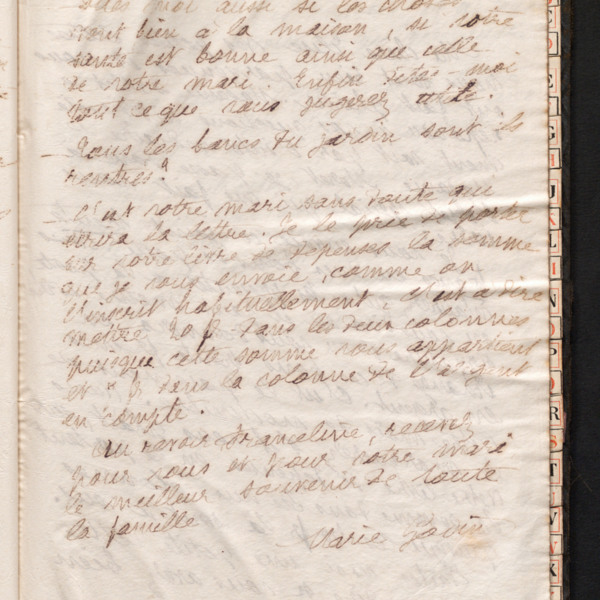 Dites moi aussi si les choses
vont bien à la maison, si votre
santé est bonne ainsi que celle
de votre mari. Enfin dites-moi
tout ce que vous jugerez utile.
Tous les bancs du jardin sont ils
rentrés ?
C'est votre mari sans doute qui
lira la lettre. Je le prie de porter
sur votre livre de dépenses la somme
que je vous envoie, comme on
l'inscrit habituellement, c'est à dire
mettre 20 f dans les deux colonnes
puisque cette somme vous appartient
et " f dans la colonne de l'argent
en compte.
Au revoir Franceline, recevez
pour vous et pour votre mari
le meilleur souvenir de toute
la famille
Marie
E
G
H
I
J
K
L
I
N
O
P
Q
R
S
T
U
V
V
X